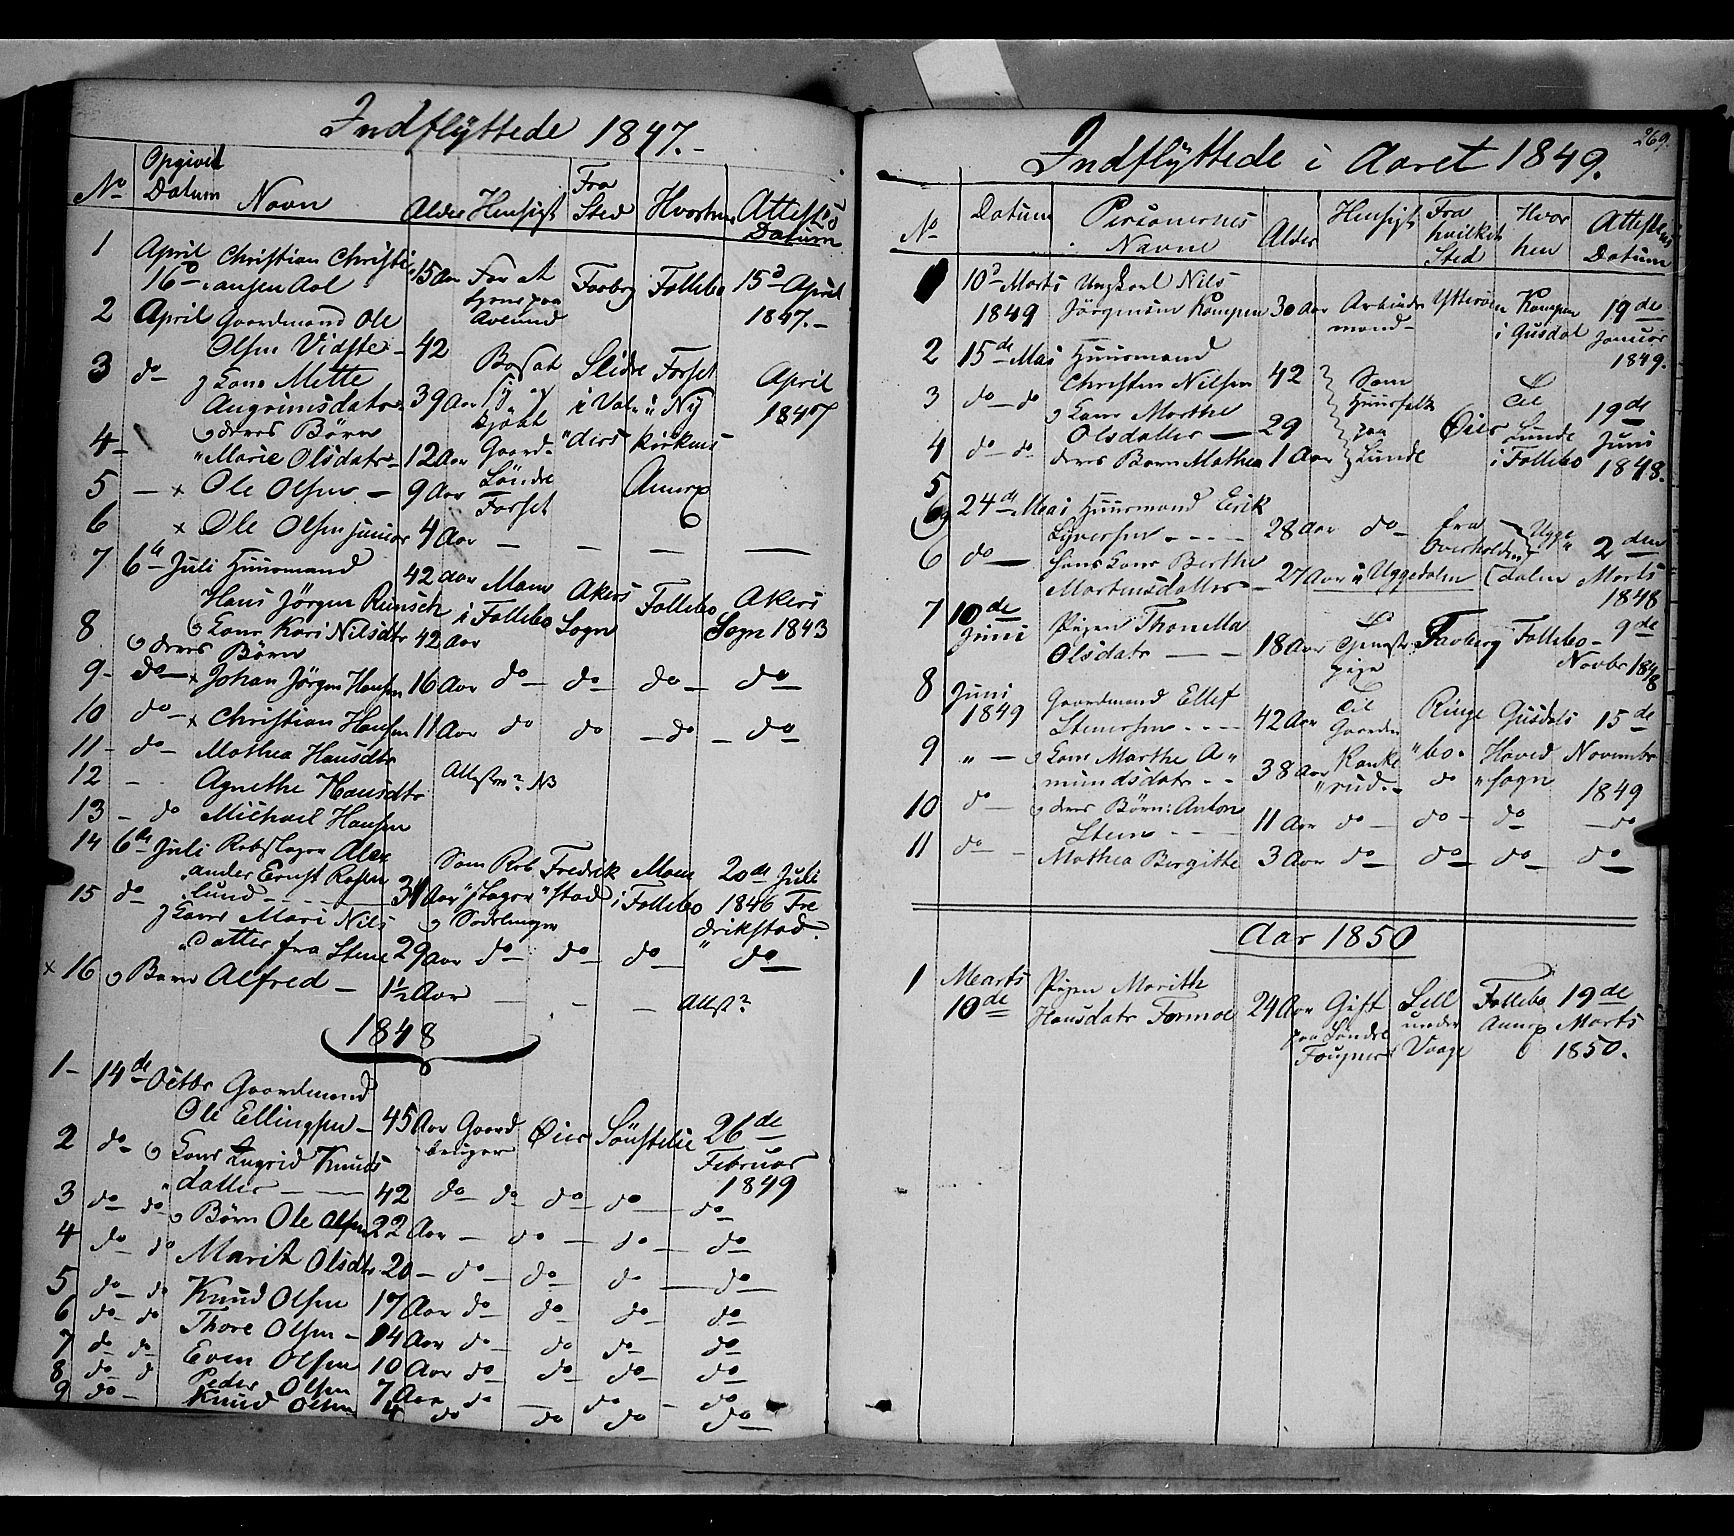 Indflyttede 1847.-
No
Opgivet Datum
Navn
Alder
Hensigt
Fra Sted
Hvorhen
Attestens Datum
1 April 16d Christian Christi-
ansen Aol 15 Aar For at tjene paa Faaberg Follebo 15d April 1847.-
2 April Gaardmand Ole
Olsen Vidste- 42 Bosat
3 do - Kone Mette
Angrimsdatr. 39 Aar Slidre i Val- "ders Forset i Ny kirkens Annex April 1847
4- deres Börn
" Marie Olsdatr - 12 Aar Gaard- Söndre Forset
5 - x Ole Olsen - 9 Aar
6 x Ole Olsen junior 4 Aar - - - -
7 6te Juli Huusmand
Hans Jörgen 42 aar Moen i Follebo Akers Sogn Follebo Akers Sogn 1843
8 Kone Kari Nilsdtr 42 Aar
deres Börn
9- do - x Johan Jörgen Hansen 16 Aar do - do - do - do -
10 do - x Christian Hansen 11 Aar do do - do - do
11 - do - Mathea Hansdtr
12 - Agnethe Hansdtr Attester? NB
13 - do Michael Hansen
14 6te Juli Rebslager Alex
ander Ernst Rosen
lund - 31 Aar Som Reb "slager Fredrik "stad Moen i Follebo 20de Juli 1846 Fre drikstad.
15 do Kone Mari Nils
datter fra Stene 29 Aar do - do - do - do -
x 16 Barn Alfred - 1½ Aar - - - Attest?
1848
1- 14de Octbr Gaardmand
Ole Ellingsen - 45 Aar Gaard bruger Öier Sönstelie 26de Februar 1849
2 do - Kone Ingrid Knuds
datter - 42 do - do do - do - do -
3 do - do Börn Ole Olsen 22 Aar - do - do - do
4 do - do Marit Olsdtr 20 - do - do - do - do
5 do - do Knud Olsen 17 Aar do - do do do
6 do - do Thore Olsen - 14 Aar do - do do - do
7 do do - Even Olsen 10 Aar do do do do
8 do d Peder Olsen 7 Aar do - do - do
9 do - Knud Olsen 4 do do do do
269.
Indflyttede i Aaret 1849.
No
Datum
Personernes Navne
Alder
Hensigt
Fra hvilket Sted
Hvor hen
Attestens Datum
10d Marts 1849 Ungkarl Nils
Jörgensen Kampen 30 Aar Arbeids mand - Ytteröen Kampen i Gusdal 19de Januar 1849.
2 15de Mai Huusmand
Christen Nilsen 42 Som Huusfolk paa Lunde Öier Til Lunde i Follebo 19de Juni 1848.
3 do - do Kone Marthe
Olsdatter - 29
4 do - do deres Barn Mathea 1 Aar
5 24de Mai Huusmand Erik
Syversen - - - - 28 Aar do - fra Overhalden Ugge "dalen 2den Marts 1848
6 do - hans Kone Berthe
Martinsdatter - 27 Aar i Uggedalen
7 10de Juni Pigen Thonella
Olsdatr - - 18 Aar Tjeneste pige Faaberg Follebo - 9de Novbr 1848
8 Juni 1849 Gaardmand Ellef
Stenersen - - - 42 Aar Til Gaarden Ringe Gusdals 15de
9 " - Kone Marthe A"
mundsdatr - - 38 Aar Kanke "rud - "bo - do Hoved "sogn Novembr 1849
10 do - deres Börn: Anton
Sten - - - 11 Aar do - do - do - do
11 do - Mathea Bergitte 3 Aar do - do - do - do -
Aar 1850
1 Marts 10de Pigen Marith
Hansdatr Formoe 24 Aar Gift paa Söndre Fougner Sell under Vaage Follebo Annex 19de Marts 1850.